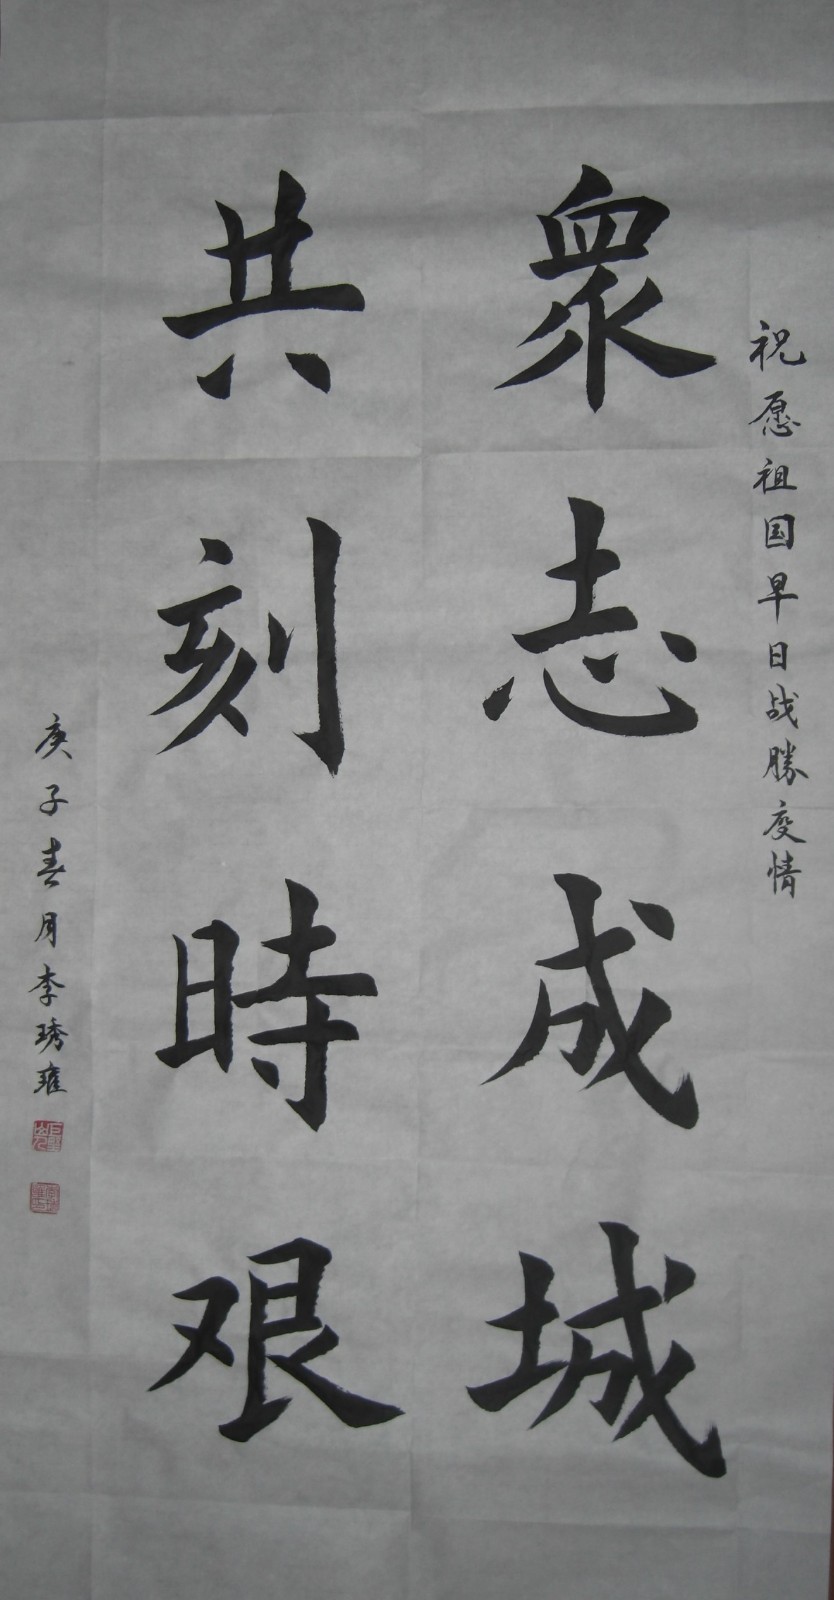 祝愿祖国早日战勝疫情
衆志成城
共刻時艰
庚子春月李琇雍